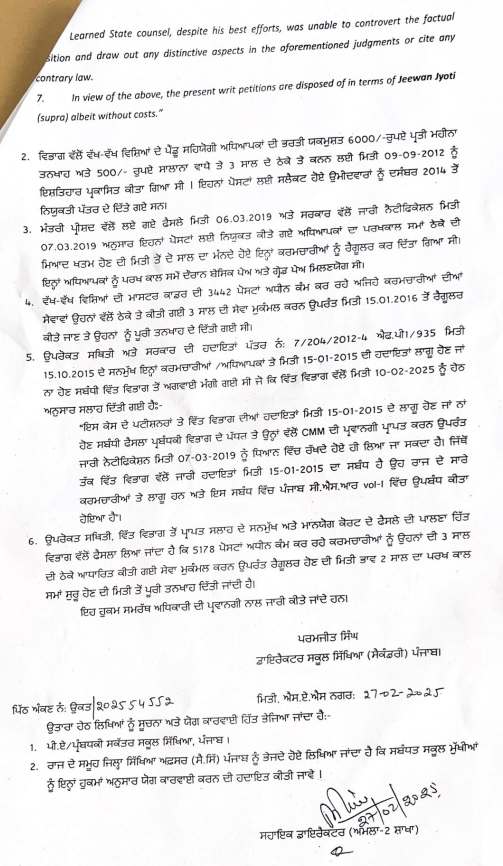 Learned State counsel, despite his best efforts, was unable to controvert the factual
sition and draw out any distinctive aspects in the aforementioned judgments or cite any
contrary law.
7. In view of the above, the present writ petitions are disposed of in terms of Jeewan Jyoti
(supra) albeit without costs."
2. ਵਿਭਾਗ ਵੱਲੋਂ ਵੱਖ-ਵੱਖ ਵਿਸ਼ਿਆਂ ਦੇ ਪੇਂਡੂ ਸਹਿਯੋਗੀ ਅਧਿਆਪਕਾਂ ਦੀ ਭਰਤੀ ਯਕਮੁਸ਼ਤ 6000/-ਰੁਪਏ ਪ੍ਰਤੀ ਮਹੀਨਾ
ਤਨਖਾਹ ਅਤੇ 500/- ਰੁਪਏ ਸਾਲਾਨਾ ਵਾਧੇ ਤੇ 3 ਸਾਲ ਦੇ ਠੇਕੇ ਤੇ ਕਰਨ ਲਈ ਮਿਤੀ 09-09-2012 ਨੂੰ
ਇਸ਼ਤਿਹਾਰ ਪ੍ਰਕਾਸ਼ਿਤ ਕੀਤਾ ਗਿਆ ਸੀ । ਇਹਨਾਂ ਪੋਸਟਾਂ ਲਈ ਸਲੈਕਟ ਹੋਏ ਉਮੀਦਵਾਰਾਂ ਨੂੰ ਦਸੰਬਰ 2014 ਤੋਂ
ਨਿਯੁਕਤੀ ਪੱਤਰ ਦੇ ਦਿੱਤੇ ਗਏ ਸਨ।
3. ਮੰਤਰੀ ਪ੍ਰੀਸ਼ਦ ਵੱਲੋਂ ਲਏ ਗਏ ਫੈਸਲੇ ਮਿਤੀ 06.03.2019 ਅਤੇ ਸਰਕਾਰ ਵੱਲੋਂ ਜਾਰੀ ਨੋਟੀਫਿਕੇਸ਼ਨ ਮਿਤੀ
07.03.2019 ਅਨੁਸਾਰ ਇਹਨਾਂ ਪੋਸਟਾਂ ਲਈ ਨਿਯੁਕਤ ਕੀਤੇ ਗਏ ਅਧਿਆਪਕਾਂ ਦਾ ਪਰਖਕਾਲ ਸਮਾਂ ਠੇਕੇ ਦੀ
ਮਿਆਦ ਖਤਮ ਹੋਣ ਦੀ ਮਿਤੀ ਤੋਂ ਦੋ ਸਾਲ ਦਾ ਮੰਨਦੇ ਹੋਏ ਇਨ੍ਹਾਂ ਕਰਮਚਾਰੀਆਂ ਨੂੰ ਰੈਗੂਲਰ ਕਰ ਦਿੱਤਾ ਗਿਆ ਸੀ।
ਇਨ੍ਹਾਂ ਅਧਿਆਪਕਾਂ ਨੂੰ ਪਰਖ ਕਾਲ ਸਮੇਂ ਦੌਰਾਨ ਬੇਸਿਕ ਪੇਅ ਅਤੇ ਗ੍ਰੇਡ ਪੇਅ ਮਿਲਣਯੋਗ ਸੀ।
4. ਵੱਖ-ਵੱਖ ਵਿਸ਼ਿਆਂ ਦੀ ਮਾਸਟਰ ਕਾਡਰ ਦੀ 3442 ਪੋਸਟਾਂ ਅਧੀਨ ਕੰਮ ਕਰ ਰਹੇ ਅਜਿਹੇ ਕਰਮਚਾਰੀਆਂ ਦੀਆਂ
ਸੇਵਾਵਾਂ ਉਹਨਾਂ ਵੱਲੋਂ ਠੇਕੇ ਤੇ ਕੀਤੀ ਗਈ 3 ਸਾਲ ਦੀ ਸੇਵਾ ਮੁਕੰਮਲ ਕਰਨ ਉਪਰੰਤ ਮਿਤੀ 15.01.2016 ਤੋਂ ਰੈਗੂਲਰ
ਕੀਤੇ ਜਾਣ ਤੇ ਉਹਨਾਂ ਨੂੰ ਪੂਰੀ ਤਨਖਾਹ ਦੇ ਦਿੱਤੀ ਗਈ ਸੀ।
5. ਉਪਰੋਕਤ ਸਥਿਤੀ ਅਤੇ ਸਰਕਾਰ ਦੀ ਹਦਾਇਤਾਂ ਪੱਤਰ ਨੰ: 7/204/2012-4 ਐਫ.ਪੀ1/935 ਮਿਤੀ
15.10.2015 ਦੇ ਸਨਮੁੱਖ ਇਨ੍ਹਾਂ ਕਰਮਚਾਰੀਆਂ /ਅਧਿਆਪਕਾਂ ਤੇ ਮਿਤੀ 15-01-2015 ਦੀ ਹਦਾਇਤਾਂ ਲਾਗੂ ਹੋਣ ਜਾਂ
ਨਾ ਹੋਣ ਸਬੰਧੀ ਵਿੱਤ ਵਿਭਾਗ ਤੋਂ ਅਗਵਾਈ ਮੰਗੀ ਗਈ ਸੀ ਜੋ ਕਿ ਵਿੱਤ ਵਿਭਾਗ ਵੱਲੋਂ ਮਿਤੀ 10-02-2025 ਨੂੰ ਹੇਠ
ਅਨੁਸਾਰ ਸਲਾਹ ਦਿੱਤੀ ਗਈ ਹੈ:-
"ਇਸ ਕੇਸ ਦੇ ਪਟੀਸ਼ਨਰਾਂ ਤੇ ਵਿੱਤ ਵਿਭਾਗ ਦੀਆਂ ਹਦਾਇਤਾਂ ਮਿਤੀ 15-01-2015 ਦੇ ਲਾਗੂ ਹੋਣ ਜਾਂ ਨਾਂ
ਹੋਣ ਸਬੰਧੀ ਫੈਸਲਾ ਪ੍ਰਬੰਧਕੀ ਵਿਭਾਗ ਦੇ ਪੱਧਰ ਤੇ ਉਨ੍ਹਾਂ ਵੱਲੋਂ CMM ਦੀ ਪ੍ਰਵਾਨਗੀ ਪ੍ਰਾਪਤ ਕਰਨ ਉਪਰੰਤ
ਜਾਰੀ ਨੋਟੀਫਿਕੇਸ਼ਨ ਮਿਤੀ 07-03-2019 ਨੂੰ ਧਿਆਨ ਵਿੱਚ ਰੱਖਦੇ ਹੋਏ ਹੀ ਲਿਆ ਜਾ ਸਕਦਾ ਹੈ। ਜਿੱਥੋਂ
ਤੱਕ ਵਿੱਤ ਵਿਭਾਗ ਵੱਲੋਂ ਜਾਰੀ ਹਦਾਇਤਾਂ ਮਿਤੀ 15-01-2015 ਦਾ ਸਬੰਧ ਹੈ ਉਹ ਰਾਜ ਦੇ ਸਾਰੇ
ਕਰਮਚਾਰੀਆਂ ਤੇ ਲਾਗੂ ਹਨ ਅਤੇ ਇਸ ਸਬੰਧ ਵਿੱਚ ਪੰਜਾਬ ਸੀ.ਐਸ.ਆਰ vol-I ਵਿੱਚ ਉਪਬੰਧ ਕੀਤਾ
ਹੋਇਆ ਹੈ"।
6. ਉਪਰੋਕਤ ਸਥਿਤੀ, ਵਿੱਤ ਵਿਭਾਗ ਤੋਂ ਪ੍ਰਾਪਤ ਸਲਾਹ ਦੇ ਸਨਮੁੱਖ ਅਤੇ ਮਾਨਯੋਗ ਕੋਰਟ ਦੇ ਫੈਸਲੇ ਦੀ ਪਾਲਣਾ ਹਿੱਤ
ਵਿਭਾਗ ਵੱਲੋਂ ਫੈਸਲਾ ਲਿਆ ਜਾਂਦਾ ਹੈ ਕਿ 5178 ਪੋਸਟਾਂ ਅਧੀਨ ਕੰਮ ਕਰ ਰਹੇ ਕਰਮਚਾਰੀਆਂ ਨੂੰ ਉਹਨਾਂ ਦੀ 3 ਸਾਲ
ਦੀ ਠੇਕੇ ਆਧਾਰਿਤ ਕੀਤੀ ਗਈ ਸੇਵਾ ਮੁਕੰਮਲ ਕਰਨ ਉਪਰੰਤ ਰੈਗੂਲਰ ਹੋਣ ਦੀ ਮਿਤੀ ਭਾਵ 2 ਸਾਲ ਦਾ ਪਰਖ ਕਾਲ
ਸਮਾਂ ਸ਼ੁਰੂ ਹੋਣ ਦੀ ਮਿਤੀ ਤੋਂ ਪੂਰੀ ਤਨਖਾਹ ਦਿੱਤੀ ਜਾਂਦੀ ਹੈ।
ਇਹ ਹੁਕਮ ਸਮਰੱਥ ਅਧਿਕਾਰੀ ਦੀ ਪ੍ਰਵਾਨਗੀ ਨਾਲ ਜਾਰੀ ਕੀਤੇ ਜਾਂਦੇ ਹਨ।
ਪਰਮਜੀਤ ਸਿੰਘ
ਡਾਇਰੈਕਟਰ ਸਕੂਲ ਸਿੱਖਿਆ (ਸੈਕੰਡਰੀ) ਪੰਜਾਬ।
ਪਿੱਠ ਅੰਕਣ ਨੰ: ਉਕਤ/202554552 ਮਿਤੀ. ਐਸ.ਏ.ਐਸ ਨਗਰ: 27-02-2025
ਉਤਾਰਾ ਹੇਠ ਲਿਖਿਆਂ ਨੂੰ ਸੂਚਨਾ ਅਤੇ ਯੋਗ ਕਾਰਵਾਈ ਹਿੱਤ ਭੇਜਿਆ ਜਾਂਦਾ ਹੈ:-
1. ਪੀ.ਏ/ਪ੍ਰੰਬਧਕੀ ਸਕੱਤਰ ਸਕੂਲ ਸਿੱਖਿਆ, ਪੰਜਾਬ ।
2. ਰਾਜ ਦੇ ਸਮੂਹ ਜਿਲ੍ਹਾ ਸਿੱਖਿਆ ਅਫ਼ਸਰ (ਸੈ.ਸਿੱ) ਪੰਜਾਬ ਨੂੰ ਭੇਜਦੇ ਹੋਏ ਲਿਖਿਆ ਜਾਂਦਾ ਹੈ ਕਿ ਸਬੰਧਤ ਸਕੂਲ ਮੁੱਖੀਆਂ
ਨੂੰ ਇਨ੍ਹਾਂ ਹੁਕਮਾਂ ਅਨੁਸਾਰ ਯੋਗ ਕਾਰਵਾਈ ਕਰਨ ਦੀ ਹਦਾਇਤ ਕੀਤੀ ਜਾਵੇ ।
27/02/2025
ਸਹਾਇਕ ਡਾਇਰੈਕਟਰ (ਅਮਲਾ-2 ਸ਼ਾਖਾ)